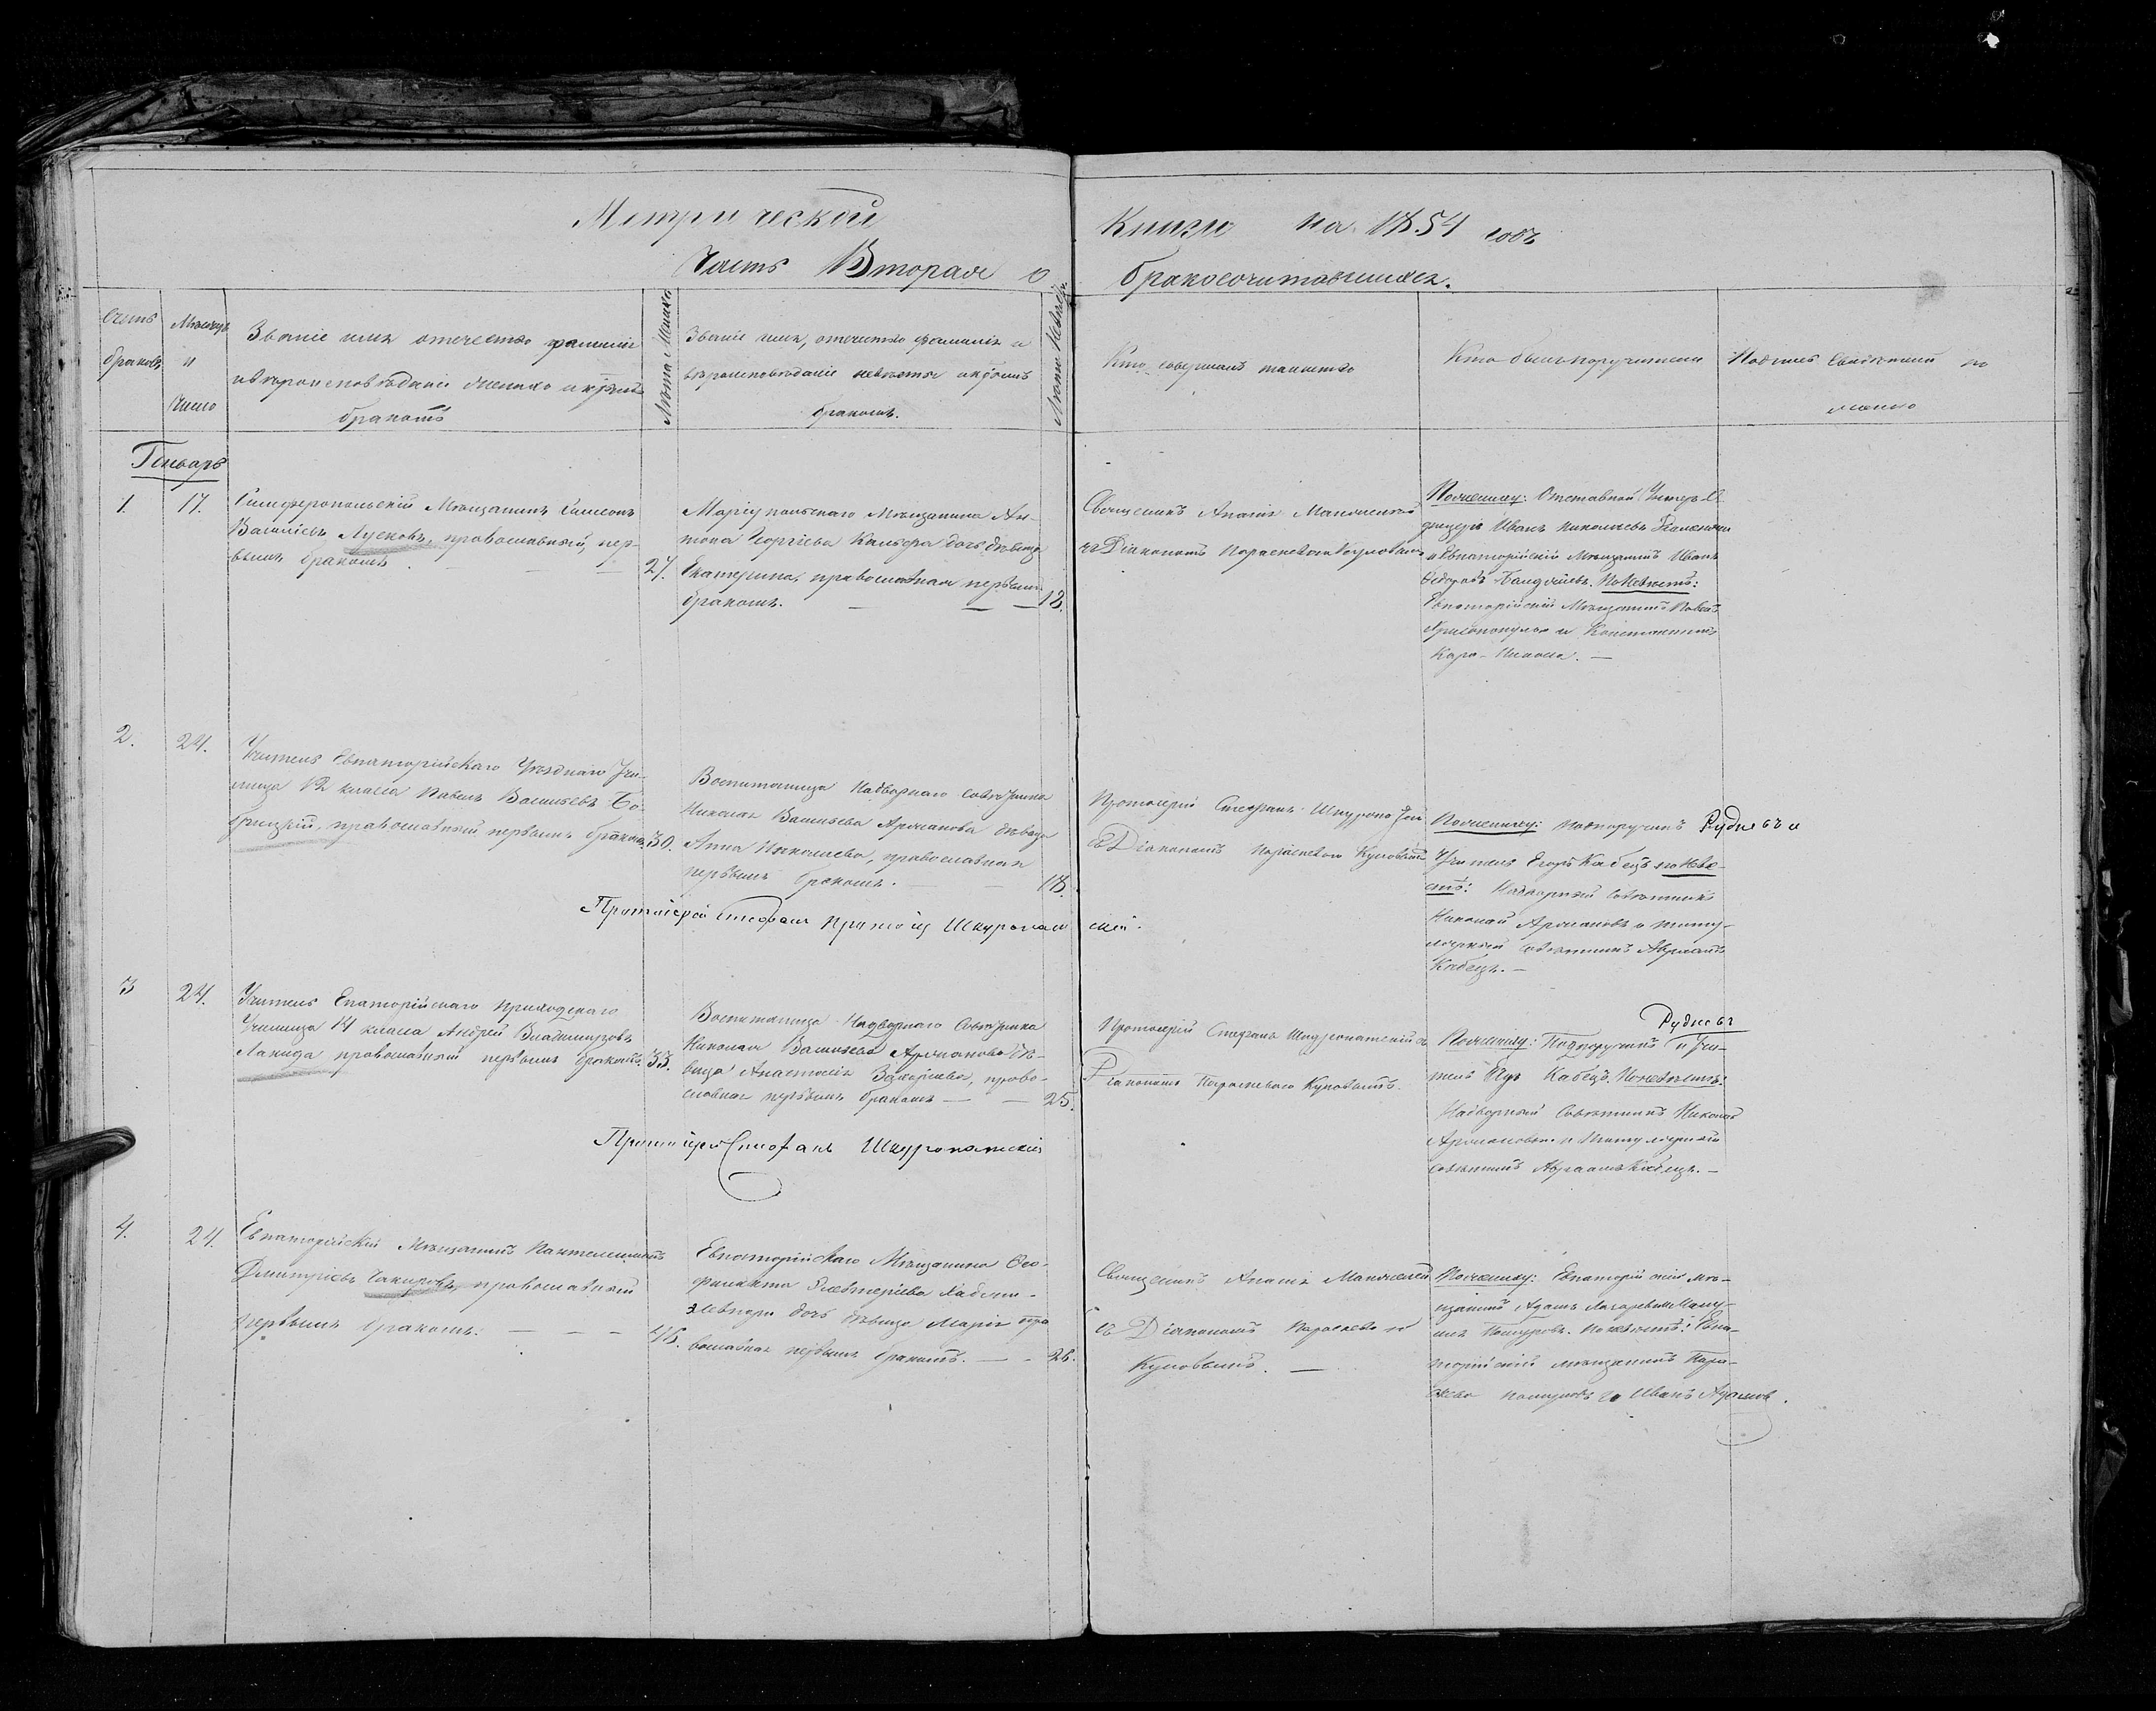 Метрической Книги на 1854 годъ
Часть Вторая о бракосочитавшихся.
Счетъ браковъ
Мѣсяцъ и число
Званіе имя отечество фамилія
и вѣроисповѣданіе жениха и кѣимъ
бракомъ
Лѣта Жениха
Званіе имя, отечество фамилія и
вѣроисповѣданіе невѣсты и кѣимъ
бракомъ.
Лѣта Невѣсты
Кто совершалъ таинство
Кто былъ поручители
Подпись свидѣтелей по
Генварь
1. 17.
Симферопольскій Мѣщанинъ Симеонъ
Васильевъ Лусковъ, православный, пер-
вымъ бракомъ — — — 27.
Маріупольскаго Мѣщанина Ан-
тона Георгіева Кальфа дочь дѣвица
Екатерина, православная первымъ
бракомъ. — — — 18.
Священникъ Ананія
съ Діакономъ
Поженику: Отставной Унтеръ-О-
фицеръ Иванъ Николаевъ
и Евпаторійскій Мѣщанинъ Иванъ
Федоровъ По Невѣстѣ:
Евпаторійскій Мѣщанинъ Павелъ
и Константинъ
Кара-Никола. —
2. 24.
Учитель Евпаторійскаго Уѣзднаго Учи-
лища 12 класа Павелъ Васильевъ Бо-
грицкій, православный первымъ бракомъ. 30.
Воспитаница Надворнаго Совѣтника
Николая Васильева Арманова дѣвица
Анна Николаева, православная
первымъ бракомъ. — — 18.
Протоіерей Стефанъ Шкуропатскій
съ Діакономъ Параскевою Куповымъ
Поженику: Подпоручикъ Рудневъ и
Учитель Егоръ Кабецъ по Невѣ-
стѣ: Надворный Совѣтникъ
Николай Армановъ и титу-
лярный совѣтникъ Авраамъ
Кабецъ. —
Протоіерей Стефанъ Шкуропатскій.
3 24.
Учитель Епаторійскаго Приходскаго
Училища 14 класа Андрей Владимировъ
Лакида православный первымъ бракомъ. 33.
Воспитаница Надворнаго Совѣтника
Николая Васильева Арманова дѣ-
вица Анастасія Захарьева, право-
славная первымъ бракомъ — — 25.
Протоіерей Стефанъ Шкуропатскій съ
Діакономъ Параскевою Куповымъ.
Рудневъ
Поженику: Подпоручикъ и Учи-
тель Кабецъ. По невѣстѣ:
Надворный Совѣтникъ Николай
Армановъ и Титулярный
совѣтникъ Авраамъ Кабецъ. —
Протоіерей Стефанъ Шкуропатскій
4. 24.
Евпаторійскій Мѣщанинъ Пантелеимонъ
Дмитріевъ Чакировъ, православный
первымъ бракомъ. — — —
Евпаторійскаго Мѣщанина Фео-
филакта Елевтеріева
дочь дѣвица Марія пра
вославная первымъ бракомъ. — — 26.
Священникъ Ананія
съ Діакономъ Параскевою
Куповымъ. —
Поженику: Евпаторійскій мѣ-
щанинъ Адамъ
По невѣстѣ: Евпа-
торійскій мѣщанинъ Пара-
скева и Иванъ